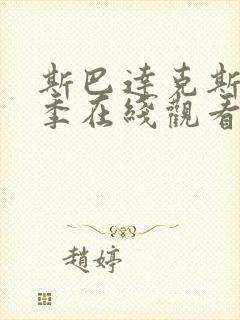 斯巴達克斯
季在綫觀看
趙婷